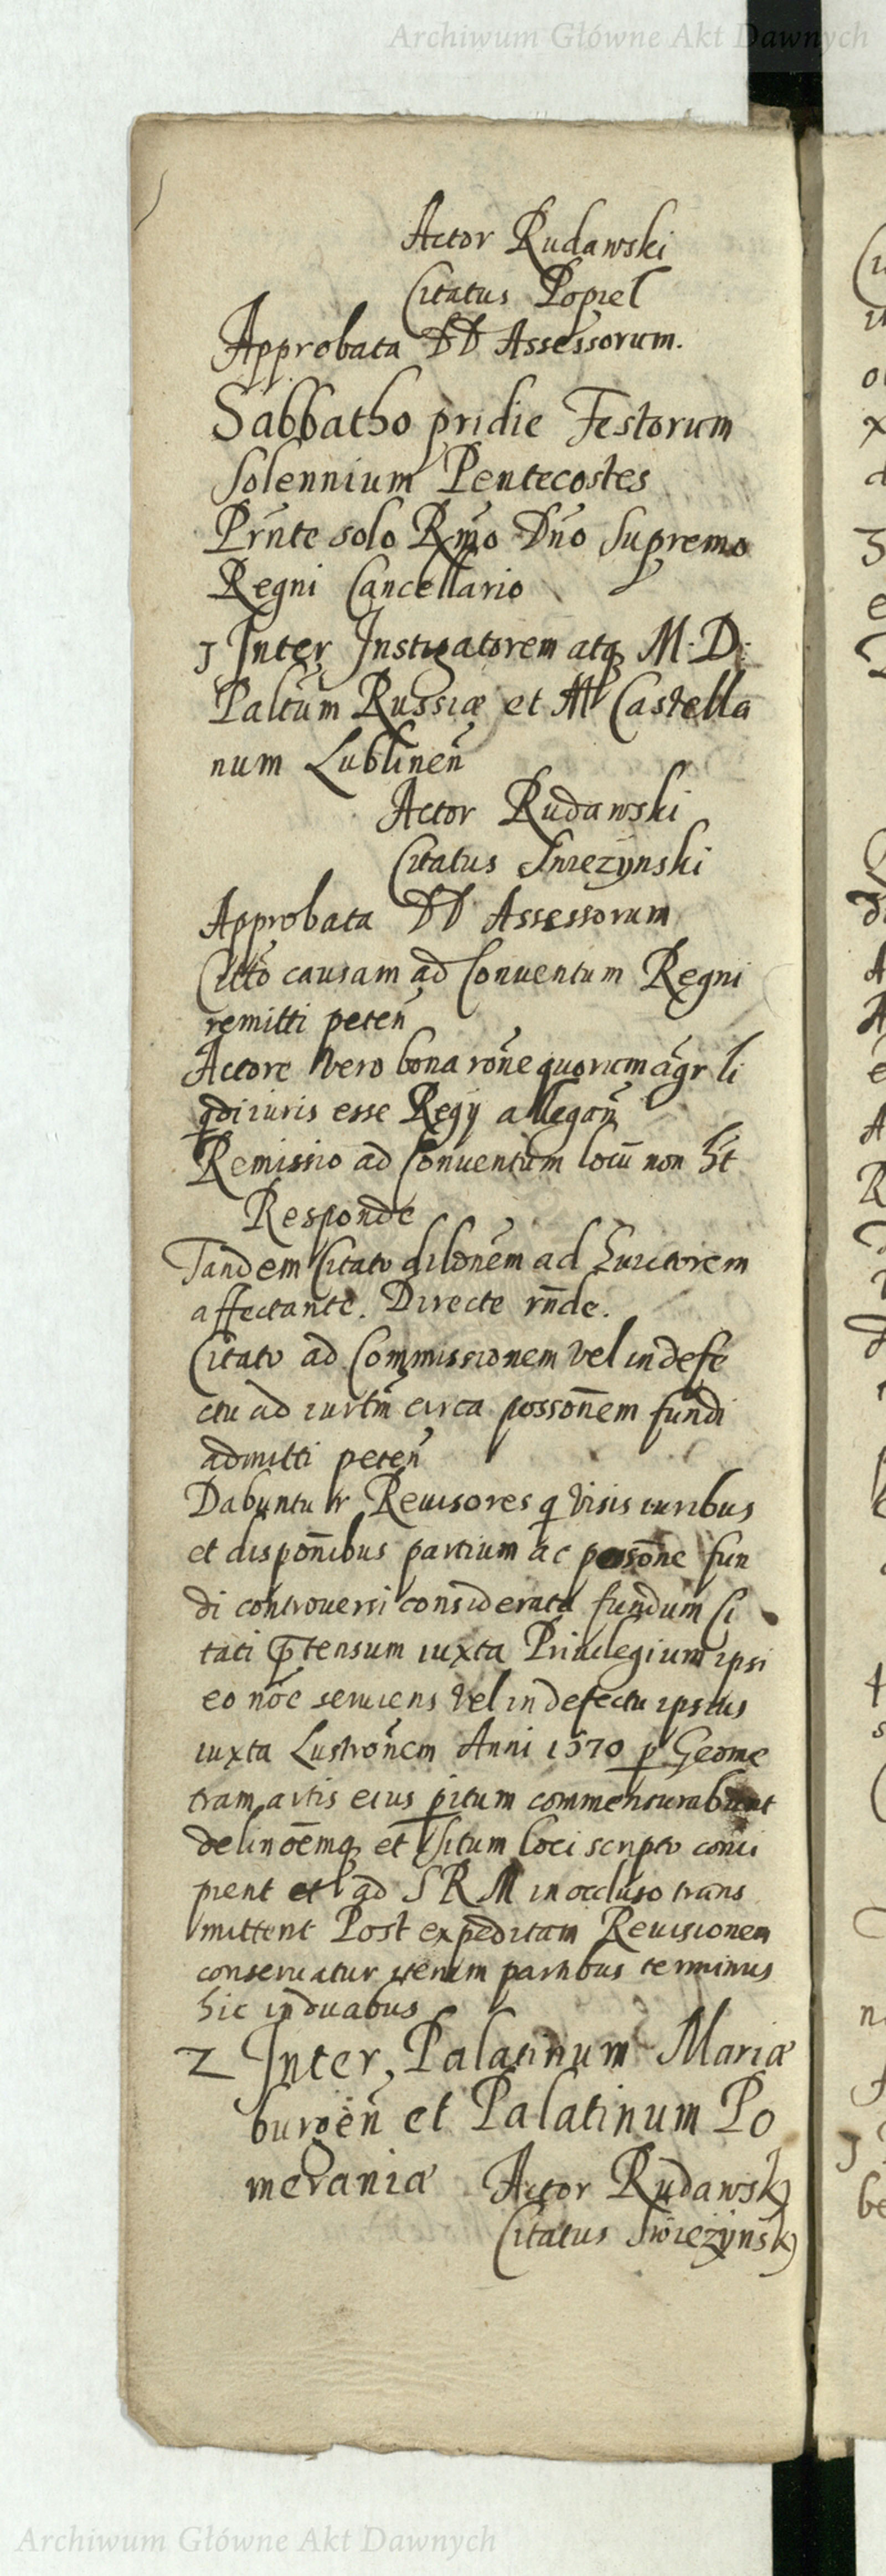 Archiwum Główne Akt Dawnych
Actor Rudawski
Citatus Popiel
Approbata DD Assessorum.
Sabbatho pridie Festorum
Solennium Pentecostes
Prnte solo Rmo Dno Supremo
Regni Cancellario
1 Inter Instigatorem atq M. D.
Paltum Russiæ et M Castella
num Lublinen
Actor Rudawski
Citatus Swiezynski
Approbata DD Assessorum
Citto causam ad Conuentum Regni
remitti peten
Actore Vero bona rone quorum agr li
qdi iuris esse Regij allegan
Remissio ad Conuentum locu non ht
Responde
Tandem Citato dilonem ad Euictorem
affectante. Directe rnde.
Citato ad Commissionem Vel in defe
ctu ad iurtm circa possonem fundi
admitti peten
Dabuntur Reuisores q Visis iuribus
et disponibus partium ac fun
di controuersi considerata fundum Ci
tati ptensum iuxta Priuilegium ipsi
eo noe seruiens Vel in defectu ipsius
iuxta Lustronem Anni 1570 p Geome
tram artis eius pitum commensurabunt
delinoemq et Situm loci scripto conci
pient et ad S R M in occluso trans
mittent Post expeditam Reuisionem
conseruatur iterum partibus terminus
hic in duabus
2 Inter Palatinum Mariæ
burgen et Palatinum Po
meraniæ Actor Rudawski
Citatus Swiezynski
Archiwum Główne Akt Dawnych